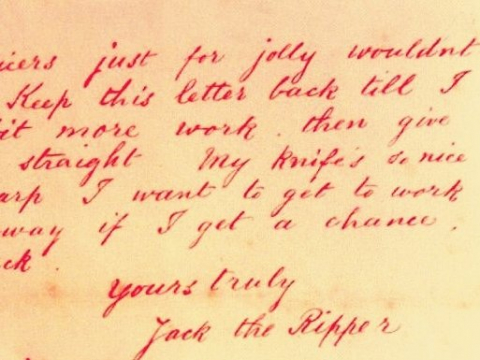 icers just for jolly wouldnt
Keep this letter back till I
bit more work. then give
straight My knife's so nice
arp I want to get to work
way if I get a chance.
ck.
Yours truly
Jack the Ripper